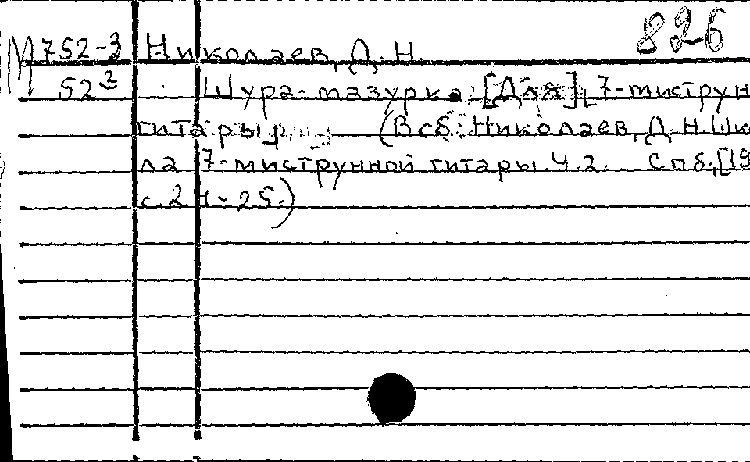 826
М 752-3 Николаев, Д. Н.
52² Шура-мазурка. [Для] 7-миструн
гитары (В сб: Николаев, Д. Н. Шко
ла 7-миструнной гитары. Ч. 2. Спб., [19
с. 24-25.)